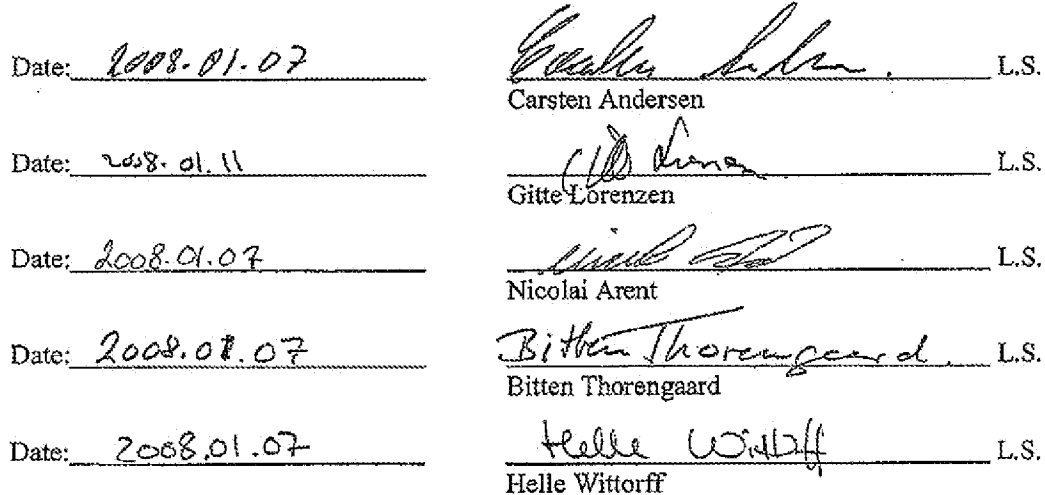 Date: 2008.01.07 L.S.
Carsten Andersen
Date: 2008.01.11 L.S.
Gitte Lorenzen
Date: 2008.01.07 L.S.
Nicolai Arent
Date: 2008.01.07 Bitten Thorengaard. L.S.
Bitten Thorengaard
Date: 2008.01.07 Helle Wittorff L.S.
Helle Wittorff